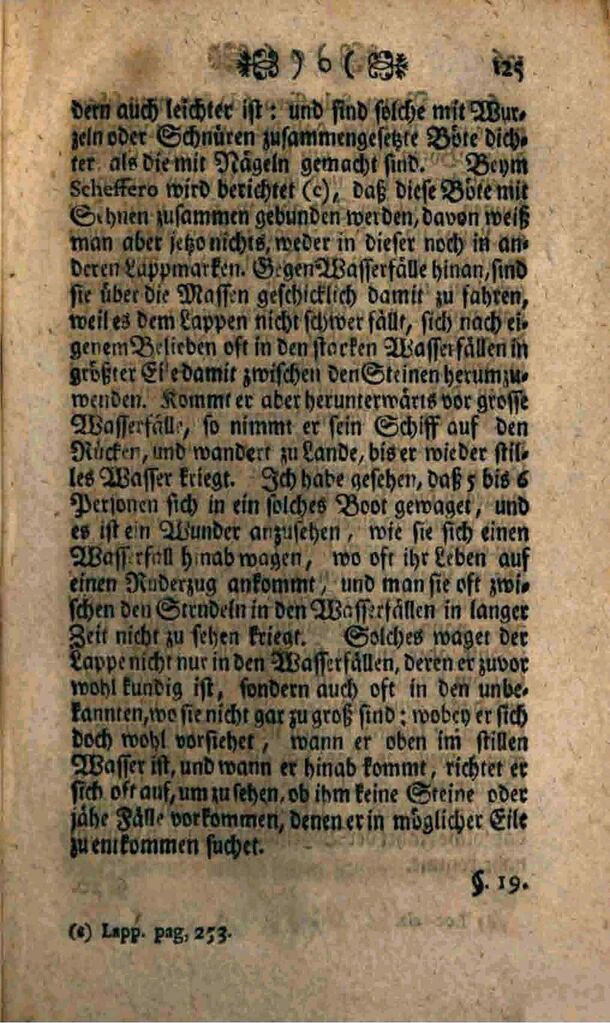 ) 6 ( 125
dern auch leichter ist: und sind solche mit Wur-
zeln oder Schnüren zusammengesetzte Böte dich-
ter als die mit Nägeln gemacht sind. Beym
Scheffero wird berichtet (c), daß diese Böte mit
Sehnen zusammen gebunden werden, davon weiß
man aber jetzo nichts, weder in dieser noch in an-
deren Lappmarken. Gegen Wasserfälle hinan, sind
sie über die Massen geschicklich damit zu fahren,
weil es dem Lappen nicht schwer fällt, sich nach ei-
genem Belieben oft in den starken Wasserfällen in
größter Eile damit zwischen den Steinen herumzu-
wenden. Kommt er aber herunterwärts vor grosse
Wasserfälle, so nimmt er sein Schiff auf den
Rücken, und wandert zu Lande, bis er wieder stil-
les Wasser kriegt. Ich habe gesehen, daß 5 bis 6
Personen sich in ein solches Boot gewaget, und
es ist ein Wunder anzusehen, wie sie sich einen
Wasserfall hinab wagen, wo oft ihr Leben auf
einen Ruderzug ankommt, und man sie oft zwi-
schen den Strudeln in den Wasserfällen in langer
Zeit nicht zu sehen kriegt. Solches waget der
Lappe nicht nur in den Wasserfällen, deren er zuvor
wohl kundig ist, sondern auch oft in den unbe-
kannten, wo sie nicht gar zu groß sind: wobey er sich
doch wohl vorsiehet, wann er oben im stillen
Wasser ist, und wann er hinab kommt, richtet er
sich oft auf, um zu sehen, ob ihm keine Steine oder
jähe Fälle vorkommen, denen er in möglicher Eile
zu entkommen suchet.
§. 19.
(c) Lapp. pag, 253.